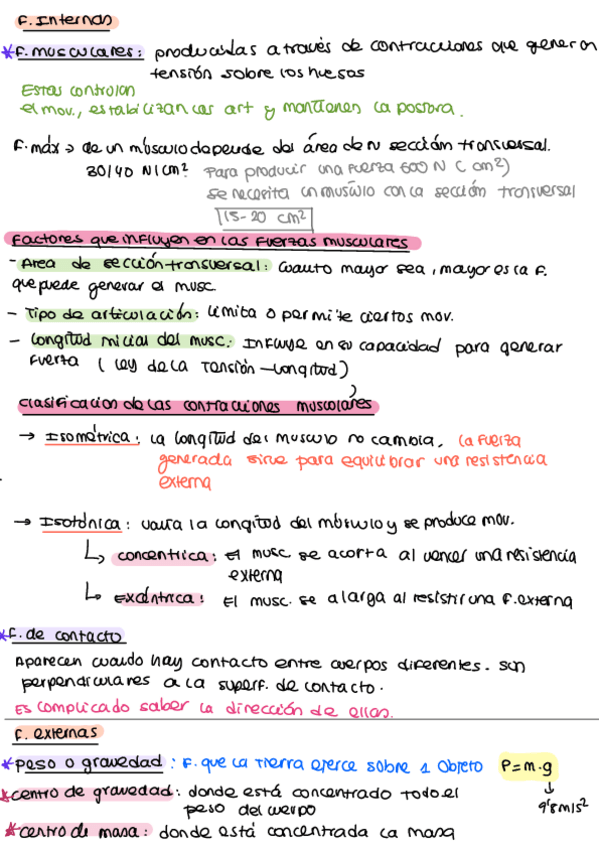 F. Internas
* F. musculares: producidas a través de contracciones que generan
tensión sobre los huesos
Estas controlan
el mov., estabilizan las art y mantienen la postura.
F. máx → de un músculo depende del área de sección transversal.
30/40 N/cm² Para producir una fuerza 600 N ( cm²)
se necesita un músculo con la sección transversal
15-20 cm²
Factores que influyen en las fuerzas musculares
- Area de sección transversal: cuanto mayor sea, mayor es la F.
que puede generar el musc.
- Tipo de articulación: limita o permite ciertos mov.
- Longitud inicial del musc.: Influye en su capacidad para generar
fuerza ( Ley de la Tensión - Longitud)
Clasificacion de las contracciones musculares
→ Isométrica: La longitud del musculo no cambia, la fuerza
generada sirve para equilibrar una resistencia
externa
→ Isotónica: varia la longitud del músculo y se produce mov.
↳ concentrica: El musc. se acorta al vencer una resistencia
externa
↳ excéntrica: El musc. se alarga al resistir una F. externa
* F. de contacto
Aparecen cuando hay contacto entre cuerpos diferentes. Son
perpendiculares a la superf. de contacto.
Es complicado saber la dirección de ellas.
F. externas
* peso o gravedad: F. que la Tierra ejerce sobre 1 objeto P=m.g
* centro de gravedad: donde está concentrado todo el ↓
peso del cuerpo 9'8 m/s²
* centro de masa: donde está concentrada la masa